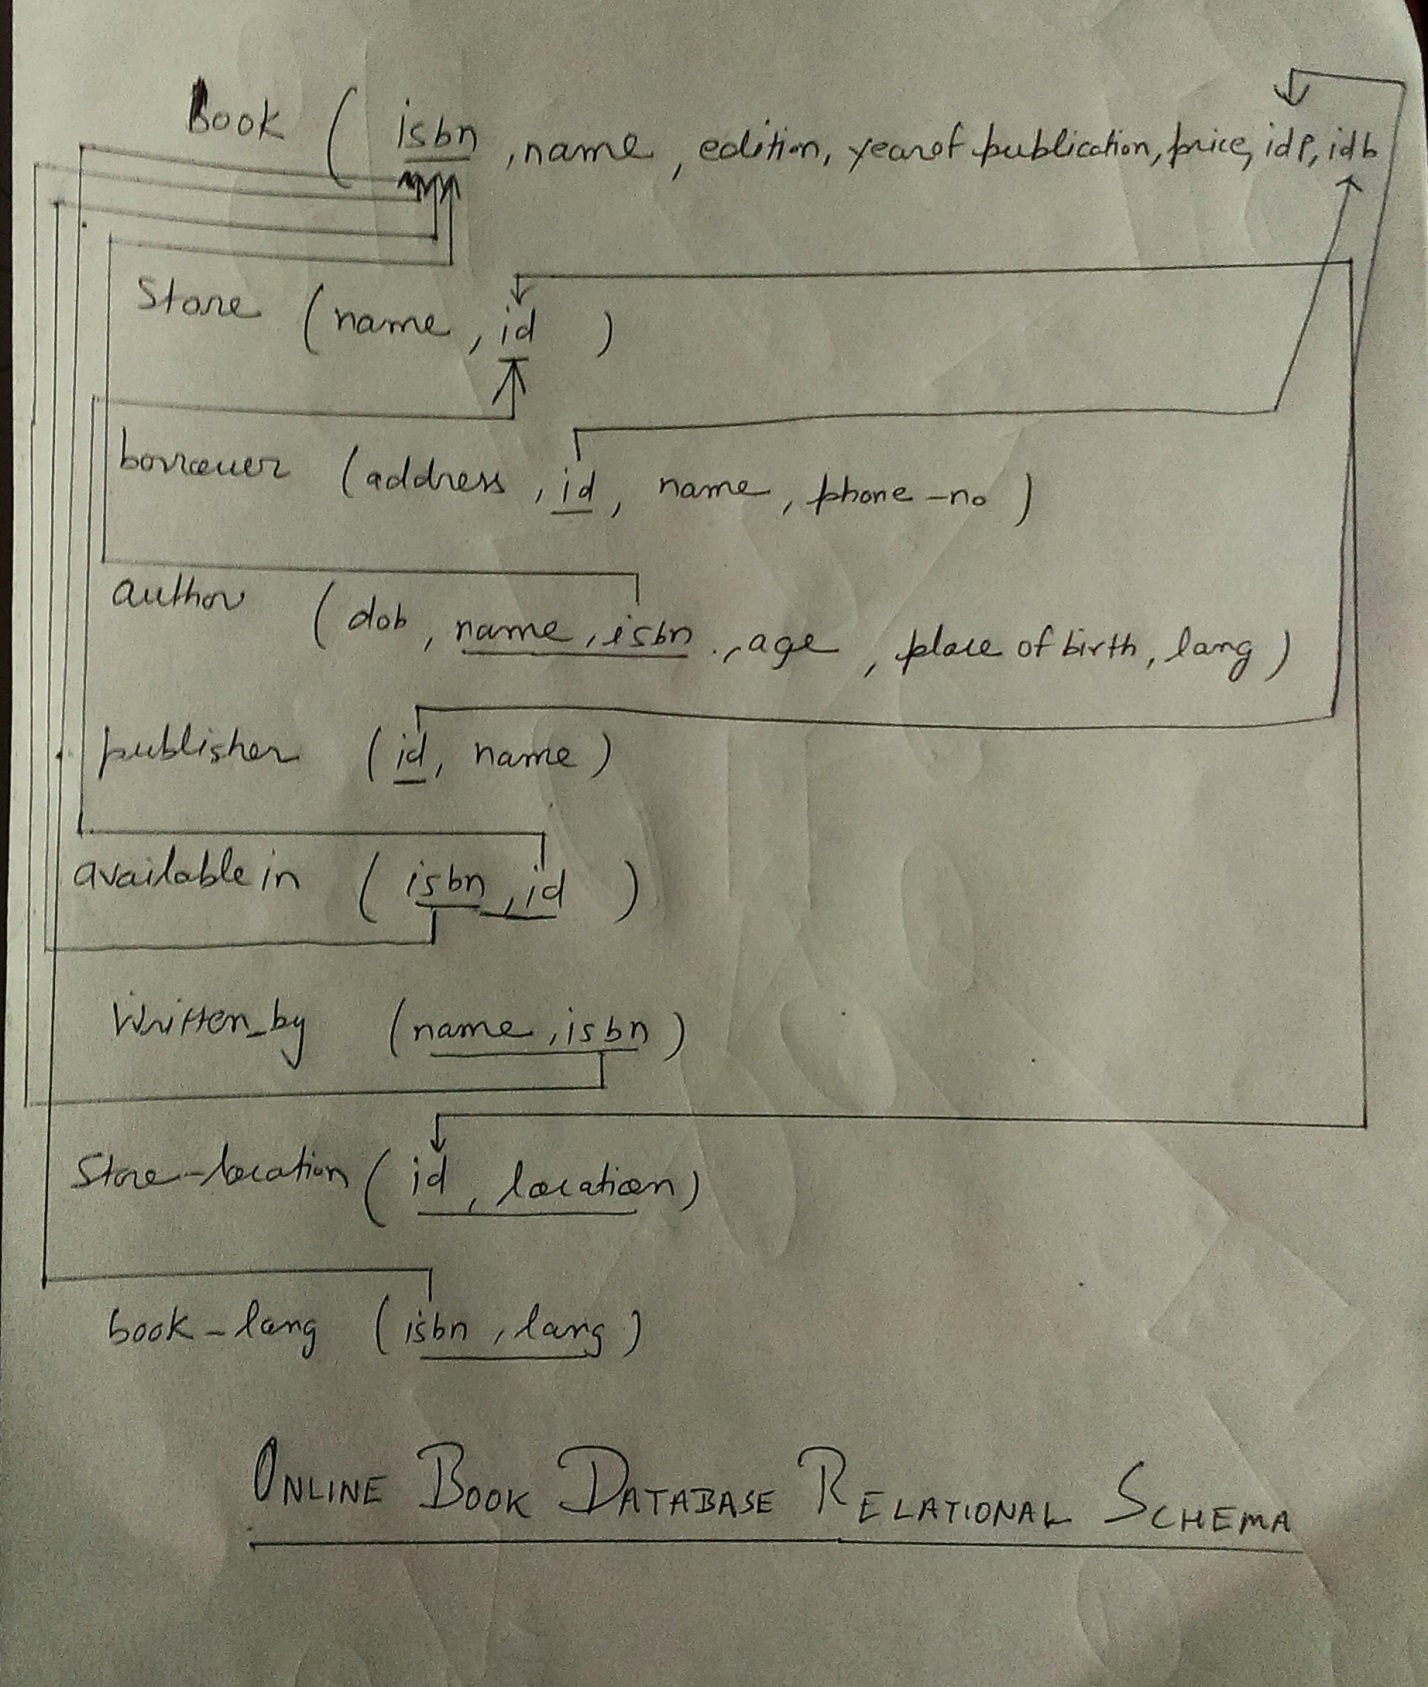 Book ( isbn , name , edition, yearof publication, price, idp, idb
Store ( name , id )
borrower ( address , id , name , phone-no )
author ( dob , name , isbn , age , place of birth , lang )
publisher ( id , name )
available in ( isbn , id )
Written_by ( name , isbn )
Store-location ( id , location )
book-lang ( isbn , lang )
ONLINE BOOK DATABASE RELATIONAL SCHEMA